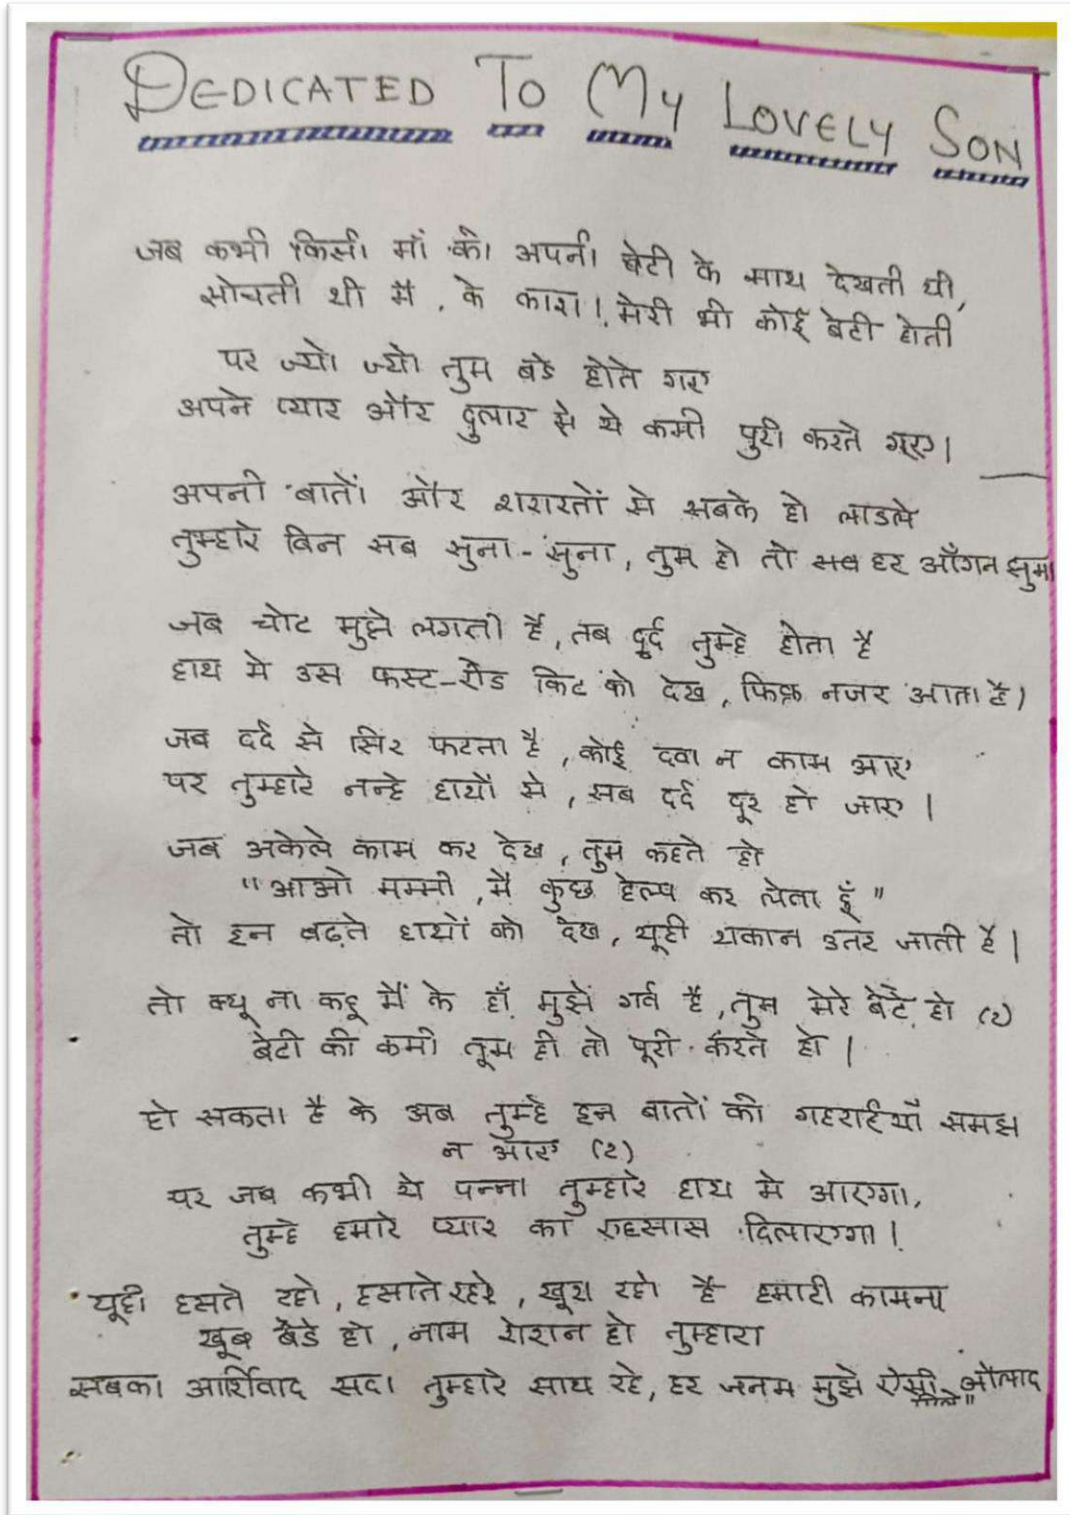 DEDICATED TO MY LOVELY SON
जब कभी किसी माँ को अपनी बेटी के साथ देखती थी,
सोचती थी मैं, के काश!, मेरी भी कोई बेटी होती
पर ज्यो ज्यो तुम बडे होते गए
अपने प्यार और दुलार से ये कमी पुरी करते गए।
अपनी बातों और शरारतों से सबके हो लाडले
तुम्हारे बिन सब सुना-सुना, तुम हो तो सब हर आँगन
जब चोट मुझे लगती है, तब दर्द तुम्हे होता है
हाथ मे उस फस्ट-ऐड किट को देख, फिक्र नजर आता है।
जब दर्द से सिर फटता है, कोई दवा न काम आए
पर तुम्हारे नन्हे हाथों से, सब दर्द दूर हो जाए।
जब अकेले काम कर देख, तुम कहते हो
"आओ मम्मी, मैं कुछ हेल्प कर लेता हूँ"
तो इन बढ़ते हाथों को देख, यूही थकान उतर जाती है।
तो क्यू ना कहू मैं के हाँ मुझे गर्व है, तुम मेरे बेटे हो (२)
बेटी की कमी तूम ही तो पूरी करते हो।
हो सकता है के अब तुम्हे इन बातों की गहराईयाँ समझ
न आए (२)
पर जब कभी ये पन्ना तुम्हारे हाथ मे आएगा,
तुम्हे हमारे प्यार का एहसास दिलाएगा।
यूही हसते रहो, हसाते रहो, खूश रहो है हमारी कामना
खूब बडे हो, नाम रोशन हो तुम्हारा
सबका आर्शिवाद सदा तुम्हारे साथ रहे, हर जनम मुझे ऐसी औलाद
मिले"